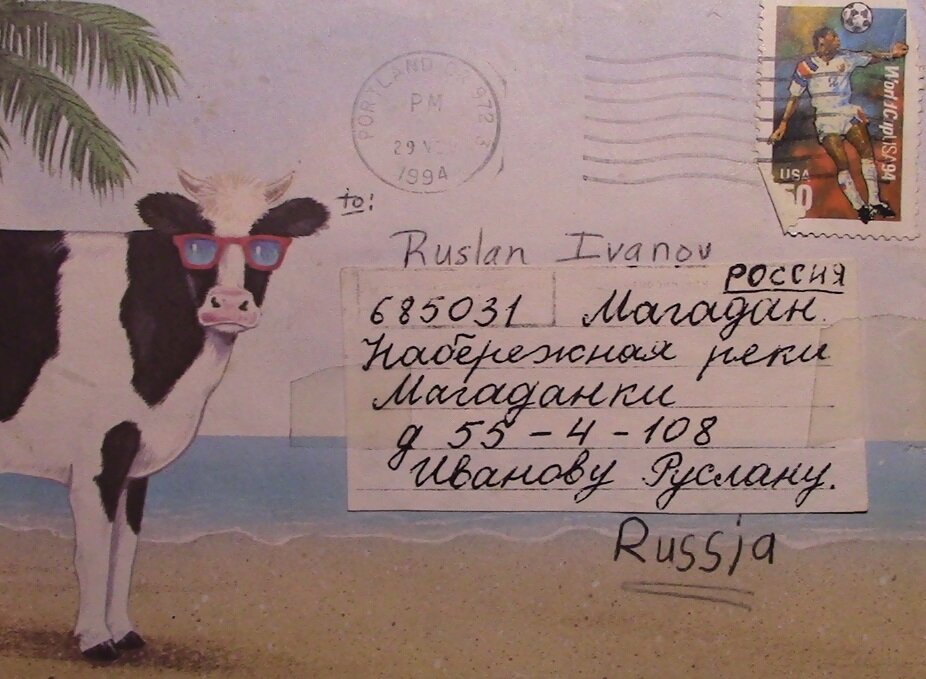 PORTLAND OR 972
PM
29
1994
World Cup USA 94
USA
50
to:
Ruslan Ivanov
РОССИЯ
685031 Магадан.
Набережная реки
Магаданки
д 55 - 4 - 108
Иванову Руслану.
Russia